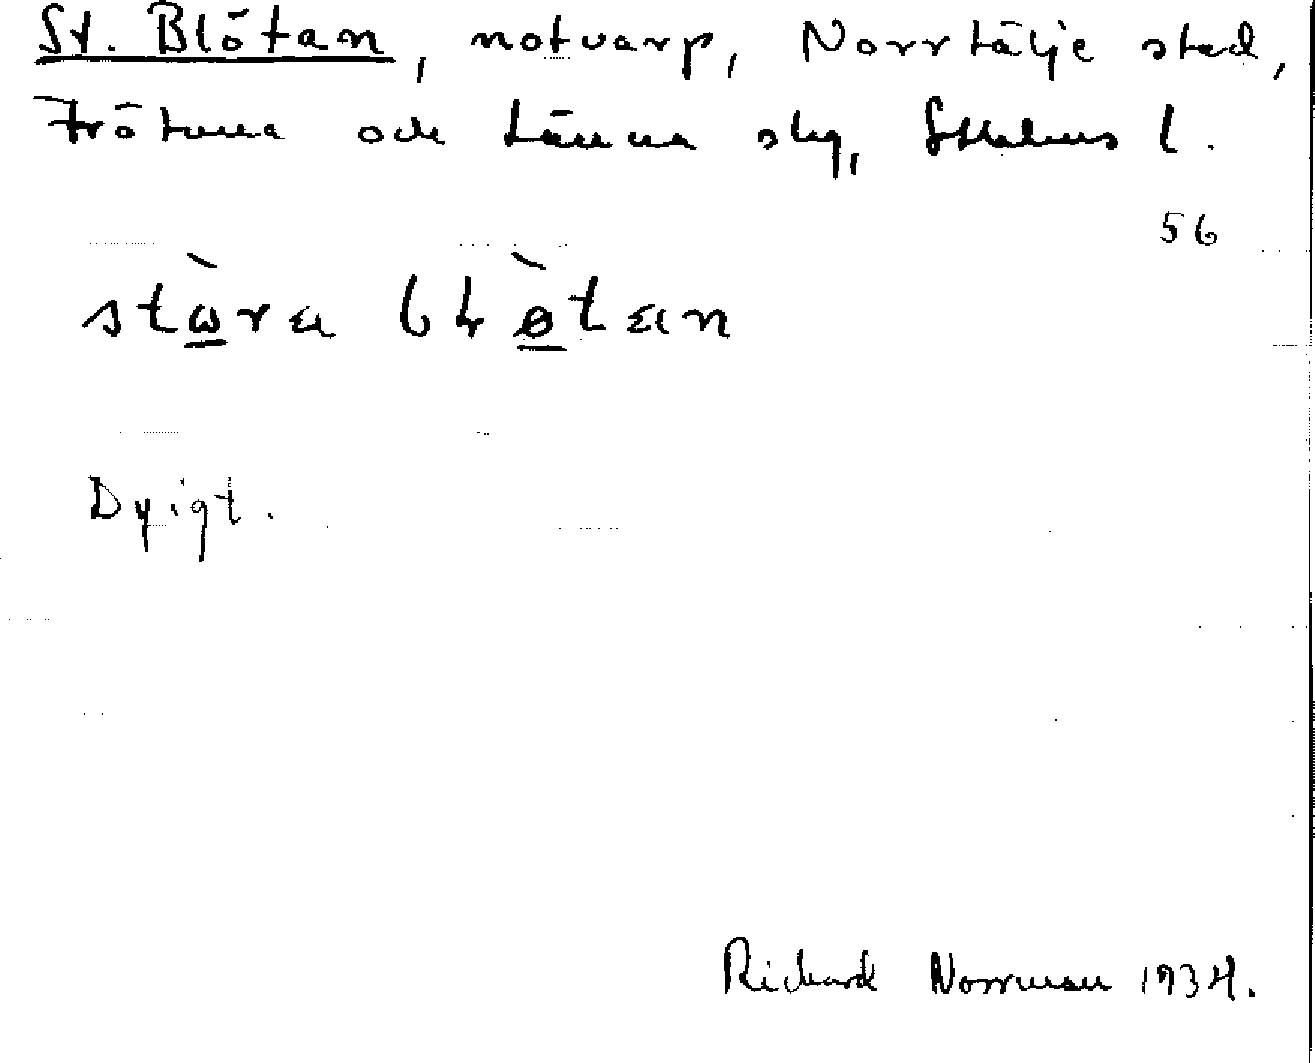 St. Blötan, notvarp, Norrtälje stad,
Frötuna och Länna slg, Sthlms l.
56
stωra błøtan
Dyigt.
Richard Norrman 1934.